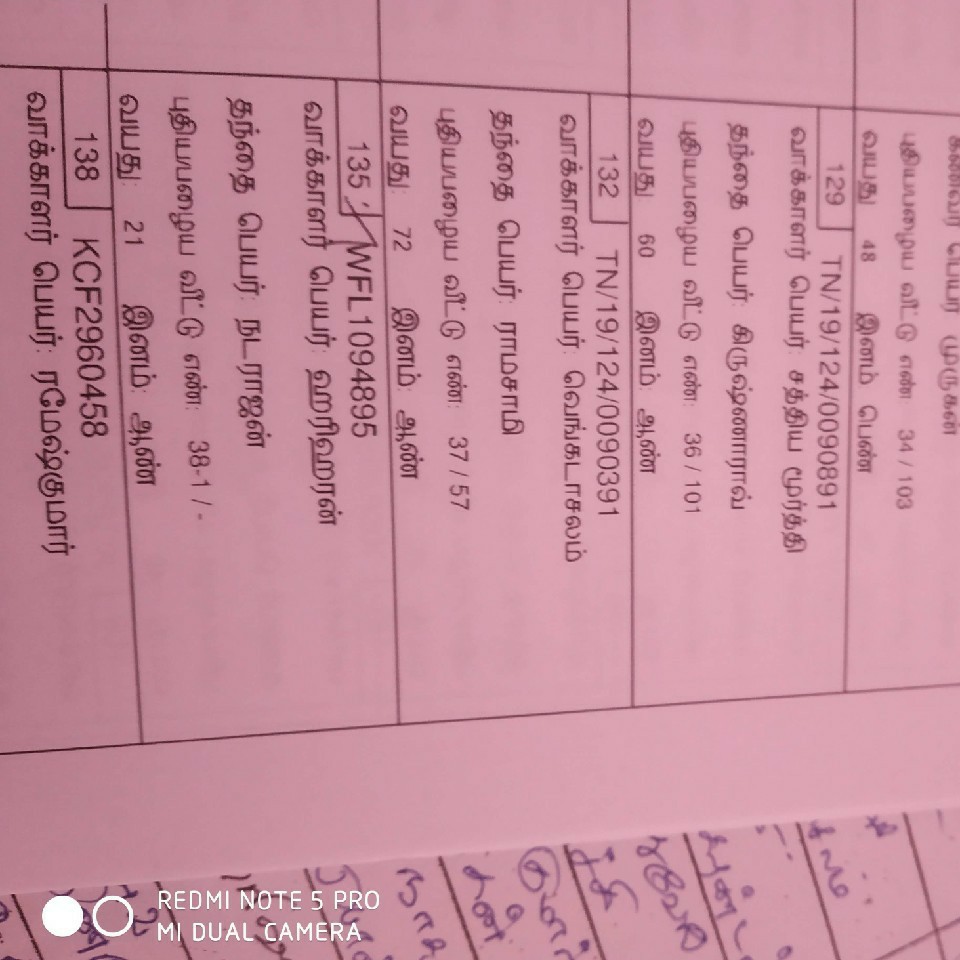 கணவர் பெயர் முருகன்
புதிய\பழைய வீட்டு எண்: 34 / 103
வயது 48 இனம் பெண்
129 TN/19/124/0090891
வாக்காளர் பெயர்: சத்திய மூர்த்தி
தந்தை பெயர்: கிருஷ்ணாராவ்
புதிய\பழைய வீட்டு எண்: 36 / 101
வயது 60 இனம்: ஆண்
132 TN/19/124/0090391
வாக்காளர் பெயர்: வெங்கடாசலம்
தந்தை பெயர்: ராமசாமி
புதிய\பழைய வீட்டு எண்: 37 / 57
வயது: 72 இனம்: ஆண்
135 WFL1094895
வாக்காளர் பெயர்: ஹரிஹரன்
தந்தை பெயர்: நடராஜன்
புதிய\பழைய வீட்டு எண்: 38-1 / -
வயது: 21 இனம்: ஆண்
138 KCF2960458
வாக்காளர் பெயர்: ரமேஷ்குமார்
REDMI NOTE 5 PRO
MI DUAL CAMERA